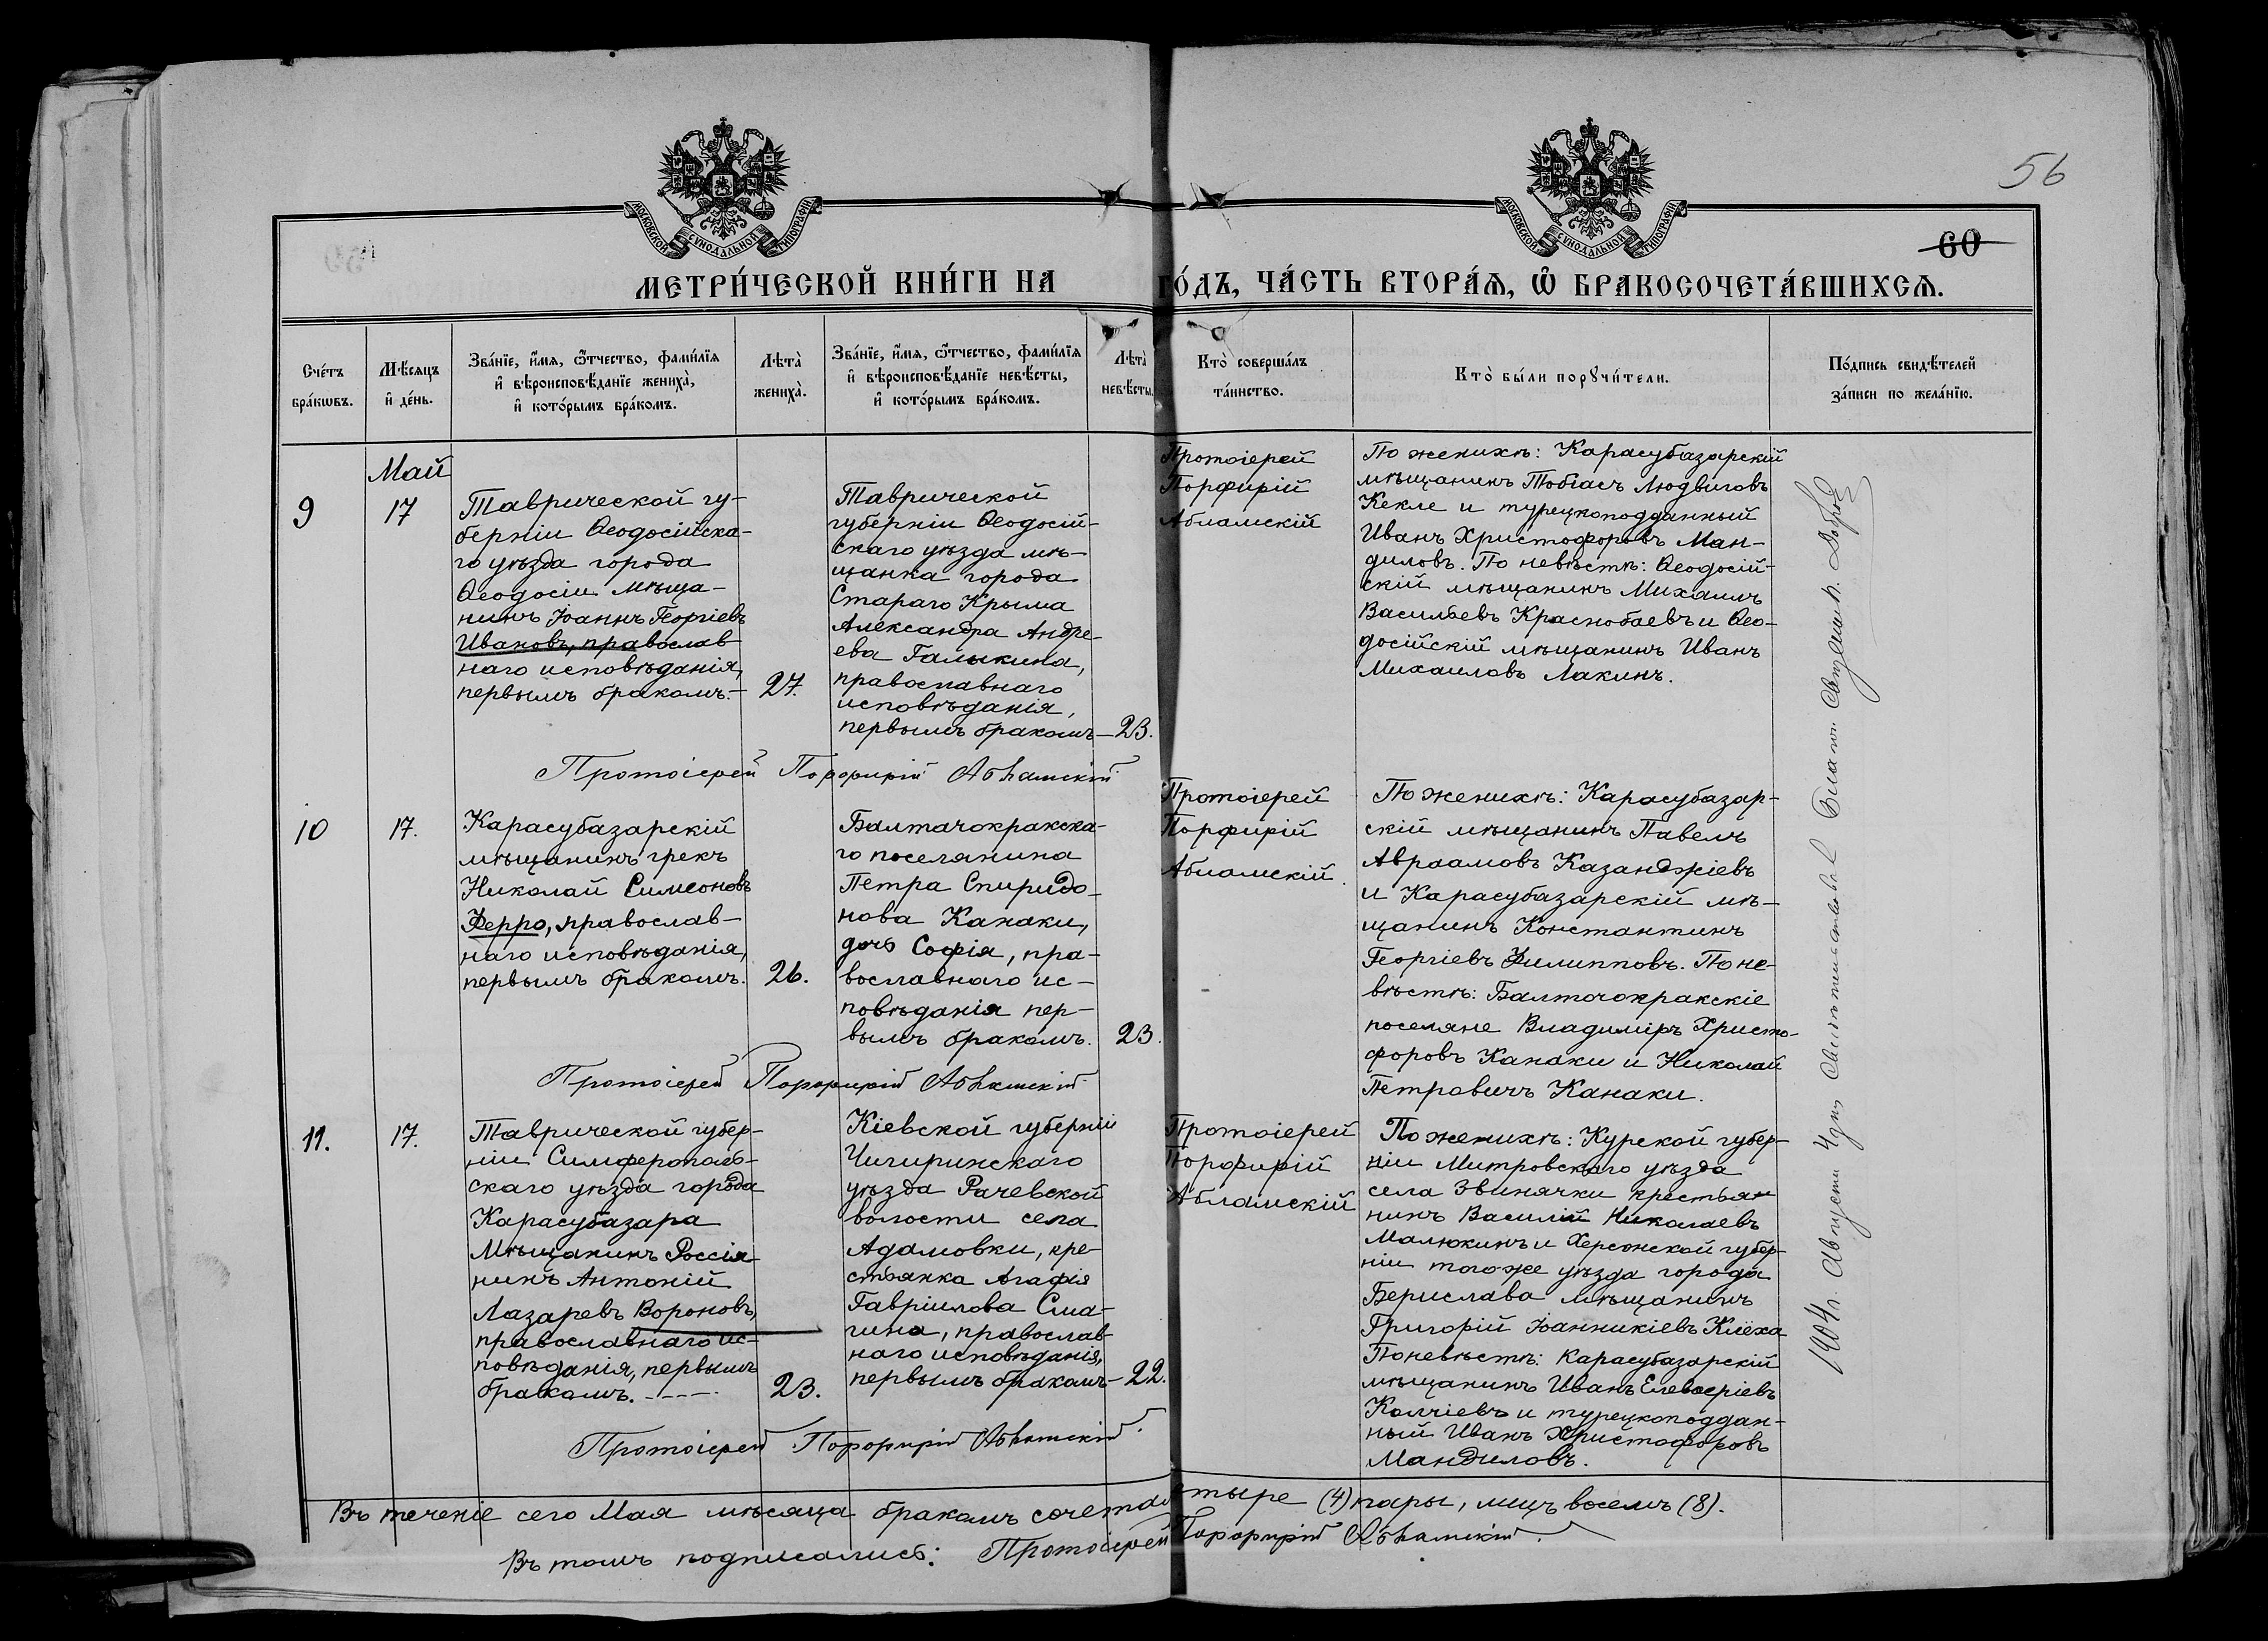 56
60
МОСКОВСКОЙ СѴНОДАЛЬНОЙ ТИПОГРАФІИ
МОСКОВСКОЙ СѴНОДАЛЬНОЙ ТИПОГРАФІИ
МЕТРИ́ЧЕСКОЙ КНИ́ГИ НА ГО́ДЪ, ЧА́СТЬ ВТОРА́Ѧ, Ѽ БРАКОСОЧЕТА́ВШИХСѦ.
Сче́тъ
бра́кѡвъ.
Мѣ́сѧцъ
и҆ де́нь.
Зва́нїе, и҆́мѧ, ѻ҆́тчество, фами́лїѧ
и҆ вѣроисповѣ́данїе жениха̀,
и҆ кото́рымъ бра́комъ.
Лѣта̀
жениха̀.
Зва́нїе, и҆́мѧ, ѻ҆́тчество, фами́лїѧ
и҆ вѣроисповѣ́данїе невѣ́сты,
и҆ кото́рымъ бра́комъ.
Лѣта̀
невѣ́сты.
Кто̀ соверша́лъ
та́инство.
Кто̀ бы́ли порꙋчи́тели.
По́дпись свидѣ́телей
за́писи по жела́нїю.
Май
9
17
Таврической гу-
берніи Ѳеодосійска-
го уѣзда города
Ѳеодосіи мѣща-
нинъ Іоаннъ Георгіевъ
Ивановъ, православ
наго исповѣданія,
первымъ бракомъ.-
27.
Таврической
губерніи Ѳеодосій-
скаго уѣзда мѣ-
щанка города
Стараго Крыма
Александра Андре-
ева Галыкина,
православнаго
исповѣданія,
первымъ бракомъ-
23.
Протоіерей
Порфирій
Абламскій
По женихѣ: Карасубазарскій
мѣщанинъ Тобіасъ Людвиговъ
Кекле и турецкоподданный
Иванъ Христофоровъ Ман-
диловъ. По невѣстѣ: Ѳеодосій-
скій мѣщанинъ Михаилъ
Васильевъ Краснобаевъ и Ѳео-
досійскій мѣщанинъ Иванъ
Михаиловъ Лакинъ.
Протоіерей Порфирій Абламскій
10
17.
Карасубазарскій
мѣщанинъ грекъ
Николай Симеоновъ
Ферро, православ-
наго исповѣданія,
первымъ бракомъ.
26.
Балтачокракска-
го поселянина
Петра Спиридо-
нова Канаки,
дочь Софія, пра-
вославнаго ис-
повѣданія пер-
вымъ бракомъ.
23.
Протоіерей
Порфирій
Абламскій.
По женихѣ: Карасубазар-
скій мѣщанинъ Павелъ
Авраамовъ Казанджіевъ
и Карасубазарскій мѣ-
щанинъ Константинъ
Георгіевъ Филипповъ. По не-
вѣстѣ: Балтачокракскіе
поселяне Владиміръ Христо-
форовъ Канаки и Николай
Петровичъ Канаки.
Протоіерей Порфирій Абламскій
11.
17.
Таврической губер-
ніи Симферополь-
скаго уѣзда города
Карасубазара
мѣщанинъ Россія
нинъ Антоній
Лазаревъ Вороновъ,
православнаго ис-
повѣданія, первымъ
бракомъ.
23.
Кіевской губерніи
Чигиринскаго
уѣзда Рачевской
волости села
Адамовки, кре-
стьянка Агафія
Гавріилова Сма-
гина, православ-
наго исповѣданія,
первымъ бракомъ-
22.
Протоіерей
Порфирій
Абламскій
По женихѣ: Курской губер-
ніи Митровскаго уѣзда
села Звинячки крестьян
нинъ Василій Николаевъ
Малюкинъ и Херсонской губер-
ніи тогоже уѣзда города
Берислава мѣщанинъ
Григорій Іоанникіевъ Клёха
По невѣстѣ: Карасубазарскій
мѣщанинъ Иванъ Елевѳеріевъ
Колчіевъ и турецкоподдан-
ный Иванъ Христофоровъ
Мандиловъ.
Протоіерей Порфирій Абламскій.
Въ теченіе сего Мая мѣсяца бракомъ сочета тыре (4) пары, лицъ восемь (8).
Въ томъ подписались: Протоіерей Порфирій Абламскій.
1904 г. Августа 4 дня Свидѣтельствовалъ